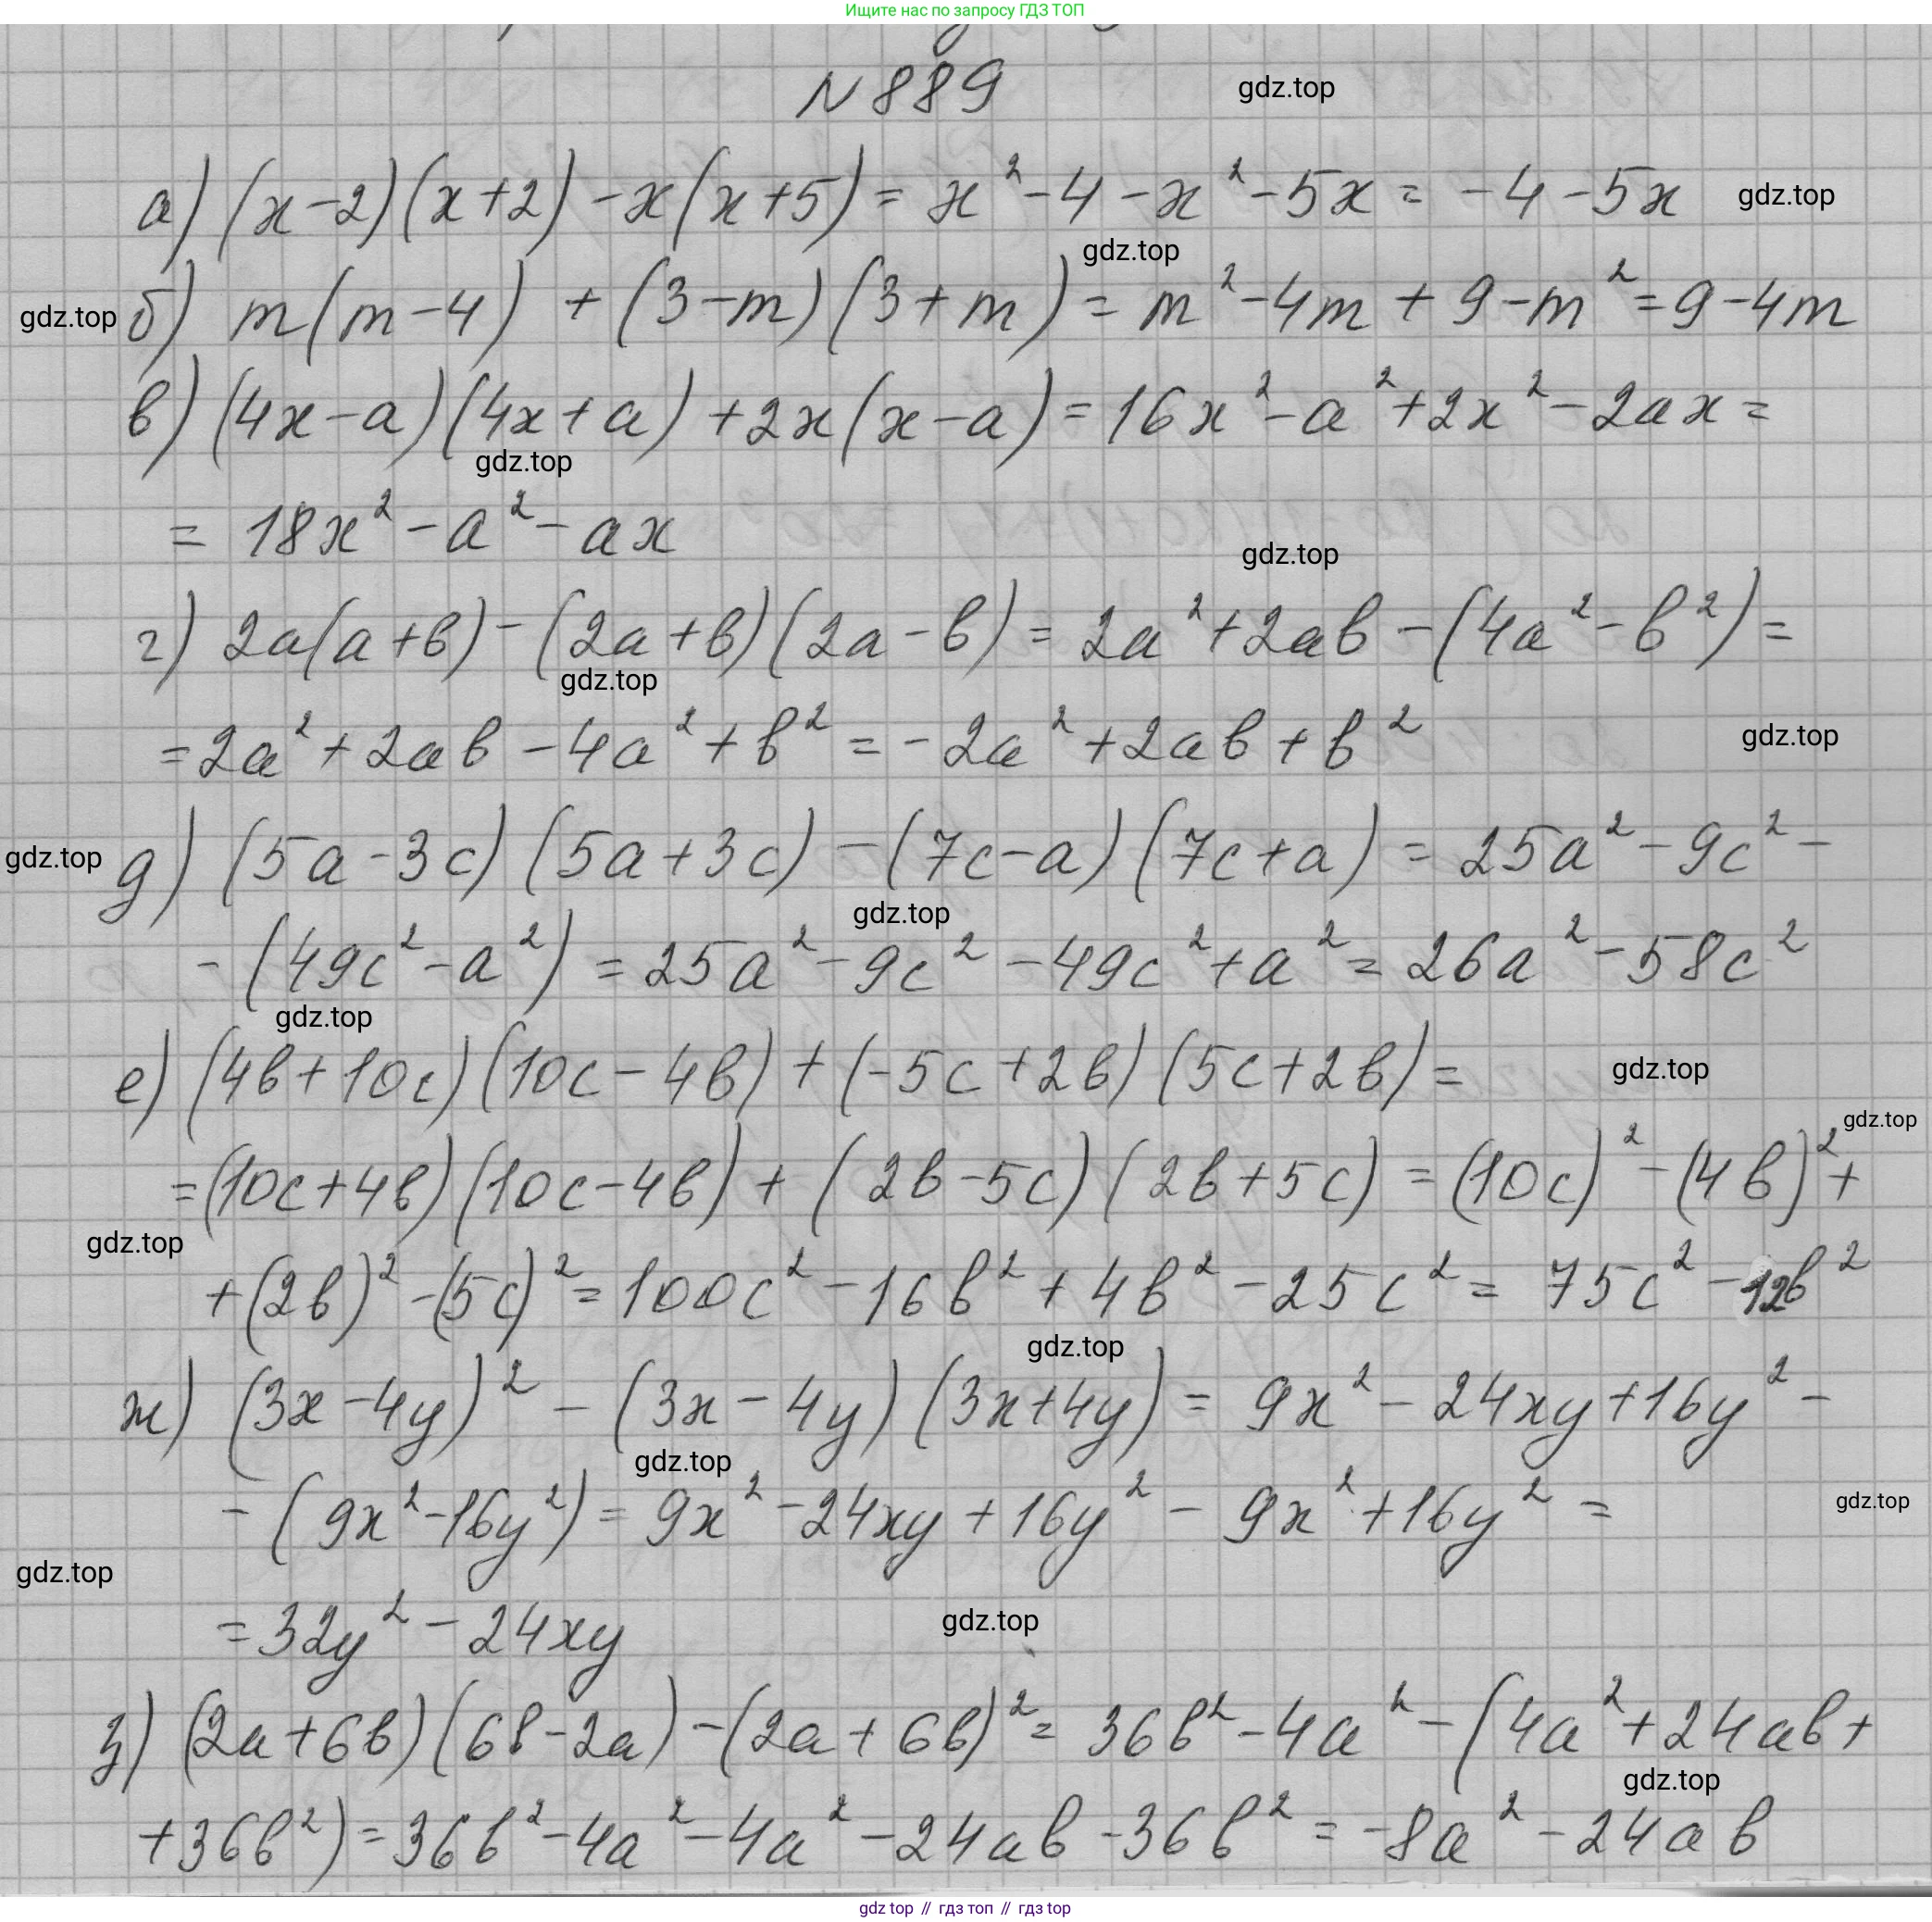 Ищите нас по запросу ГДЗ ТОП
N 889 gdz.top
а) (x-2)(x+2) - x(x+5) = x² - 4 - x² - 5x = -4 - 5x gdz.top
gdz.top
gdz.top б) m(m-4) + (3-m)(3+m) = m² - 4m + 9 - m² = 9 - 4m
в) (4x-a)(4x+a) + 2x(x-a) = 16x² - a² + 2x² - 2ax =
gdz.top
= 18x² - a² - ax
gdz.top
г) 2a(a+b) - (2a+b)(2a-b) = 2a² + 2ab - (4a² - b²) =
gdz.top
= 2a² + 2ab - 4a² + b² = -2a² + 2ab + b² gdz.top
gdz.top д) (5a-3c)(5a+3c) - (7c-a)(7c+a) = 25a² - 9c² -
gdz.top
- (49c² - a²) = 25a² - 9c² - 49c² + a² = 26a² - 58c²
gdz.top
е) (4b+10c)(10c-4b) + (-5c+2b)(5c+2b) = gdz.top
gdz.top
= (10c+4b)(10c-4b) + (2b-5c)(2b+5c) = (10c)² - (4b)² +
gdz.top
+ (2b)² - (5c)² = 100c² - 16b² + 4b² - 25c² = 75c² - 12b²
gdz.top
ж) (3x-4y)² - (3x-4y)(3x+4y) = 9x² - 24xy + 16y² -
gdz.top
- (9x² - 16y²) = 9x² - 24xy + 16y² - 9x² + 16y² = gdz.top
gdz.top
= 32y² - 24xy gdz.top
з) (2a+6b)(6b-2a) - (2a+6b)² = 36b² - 4a² - (4a² + 24ab +
gdz.top
+ 36b²) = 36b² - 4a² - 4a² - 24ab - 36b² = -8a² - 24ab
gdz top // гдз топ // гдз top